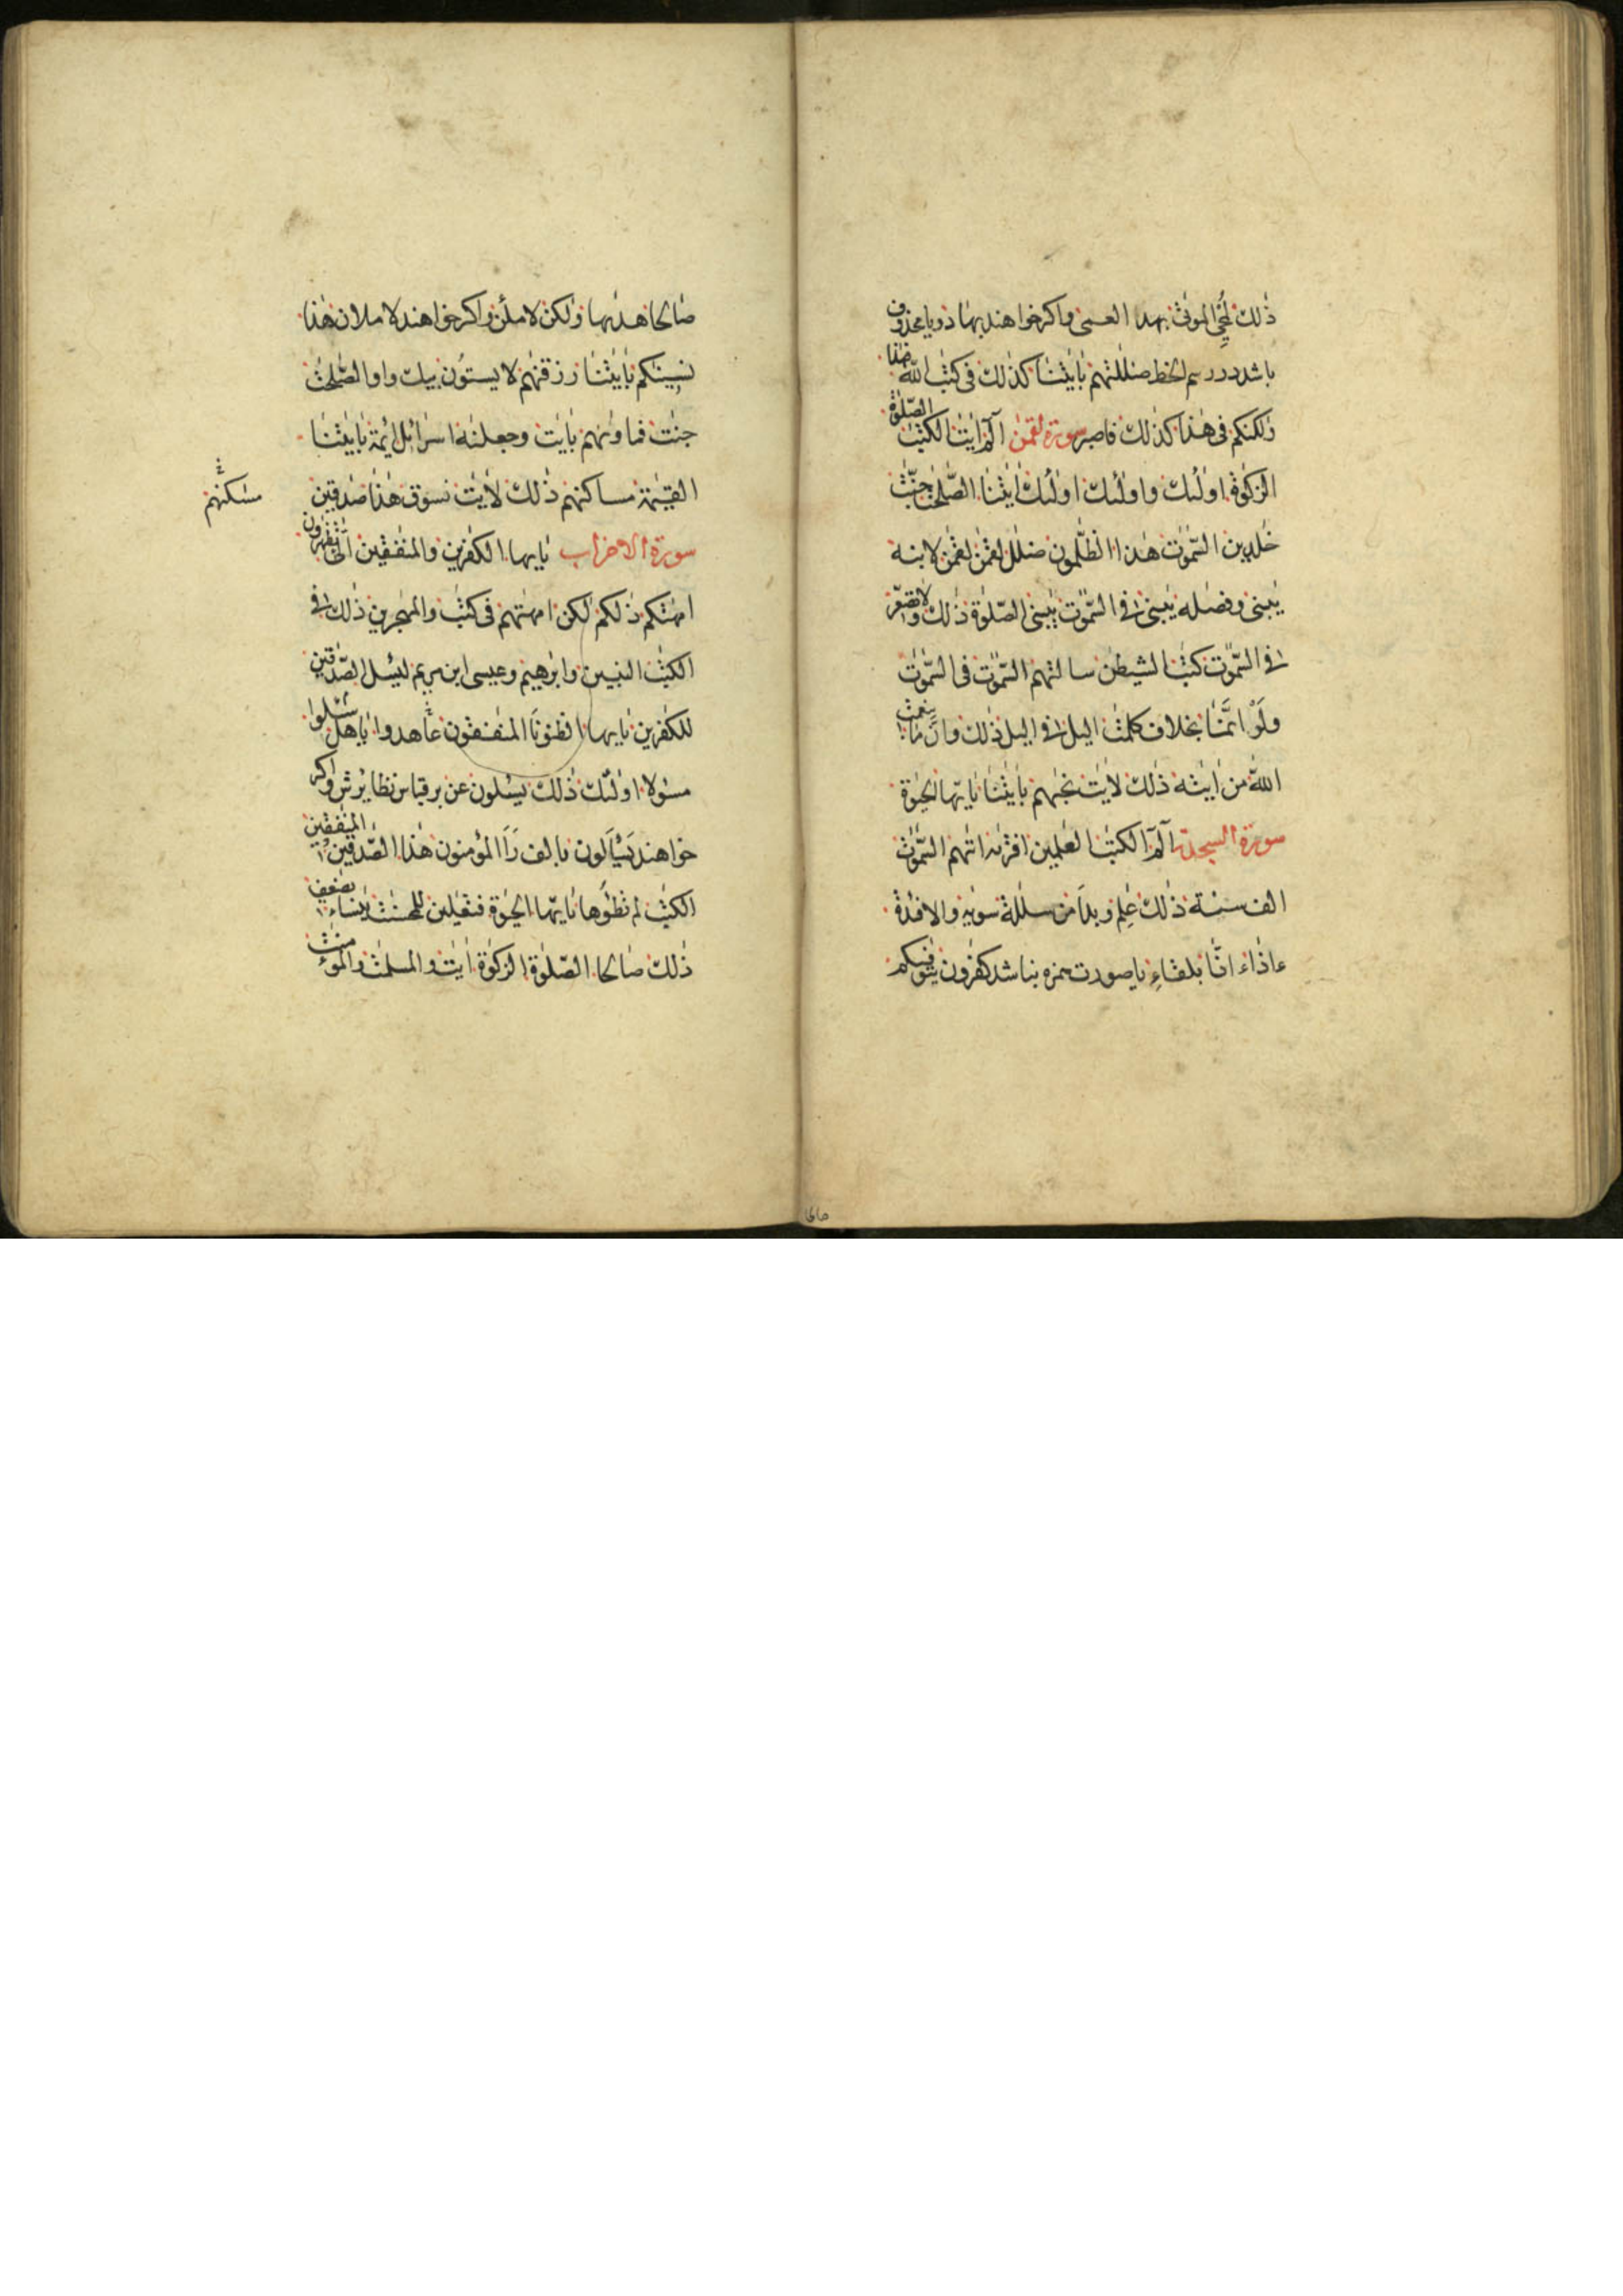 ذٰلك لمحي الموتى بهد العمى واكر خواهند بها دو يا محذوف
باشد در رسم الخط ضللتهم بايتنا كذلك فى كتب الله هذا
ولكنكم فى هذا كذلك فاصبر سورة لقمن الم ايت الكتب الصلوة
الزكوة اولئك واولئك اولئك ايتنا الصلحت جنت
خلدين السموت هذا الظلمون ضلل لقمن لقمن لابنه
يبنى وفصله يبنى او فى السموت يبنى الصلوة ذلك ولا تصعر
فى السموت كتب الشيطن سالتهم السموت فى السموت
ولو انما بخلاف كلمت اليل فى اليل ذلك وان ما بنعمت
الله من ايته ذلك لايت نجهم بايتنا يايها الحيوة
سورة السجدة الم الكتب العلمين افتريه اتهم السموت
الف سنة ذلك علم وبدا من سللة سويه والافدة
ءاذا ءانا بلقاء يا صورت همزه بناشد كفرون يتوفيكم
صالحا هديها ولكن لاملئن واكر خواهند لاملان هذا
نسينكم بايتنا رزقنهم لا يستون بيك واو الصلحت
جنت فماويهم بايت وجعلنه اسرائل ائمة بايتنا
القيمة مساكنهم ذلك لايت نسوق هذا صدقين
مسكنهم
سورة الاحزاب يايها الكفرين والمنفقين الى تظهرون
امهتكم ذلكم لكن امهتهم فى كتب والمهجرين ذلك فى
الكتب النبين وابرهيم وعيسى ابن مريم ليسل الصدقين
للكفرين يايها الظنونا المنفقون عاهدوا ياهل سئلوا
مسولا اولئك ذلك يسئلون عن بر قياس نظايرش واكر
خواهند يسيالون بالف را المؤمنون هذا الصدقين المنفقين
الكتب لم تطؤها يايها الحيوة فتعلين للمحسنت ينساء يضعف
ذلك صالحا الصلوة الزكوة ايت والمسلمت والمؤمنت
صالحا